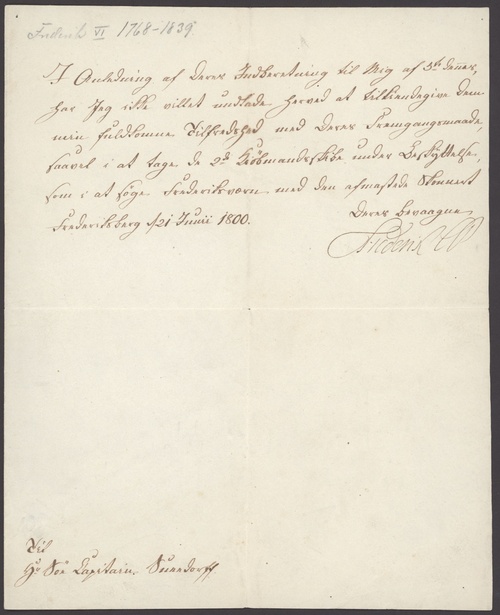 Frederik VI 1768-1839.
I Anledning af Deres Indberetning til Mig af 5te denes,
har Jeg ikke villet undlade herved at tilkiendegive Dem
min fuldkomne Tilfredshed med Deres Fremgangsmaade,
saavel i at tage de 2de Kiöbmandsskibe under Beskyttelse,
som i at söge Frederiksværn med den afmastede Skonnert
Frederiksberg d/21 Junii 1800.
Deres bevaagne
Frederik
Til
Hr Söe Capitain